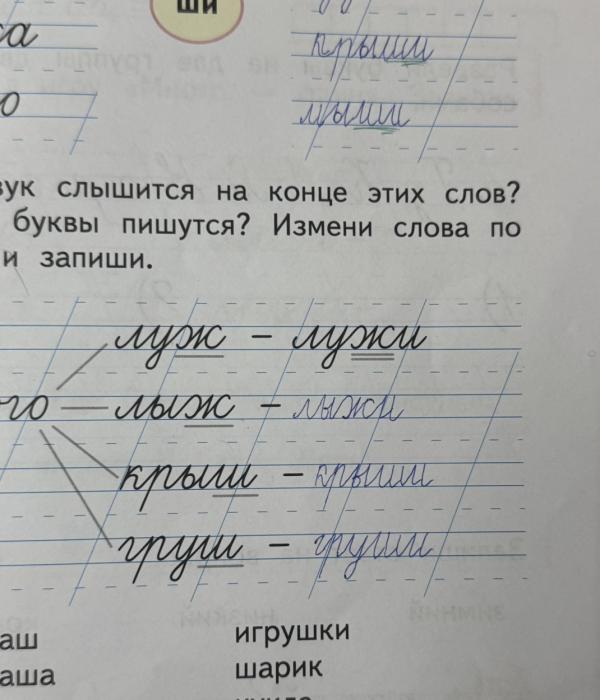 ши
са
крыши
о
мыши
звук слышится на конце этих слов?
буквы пишутся? Измени слова по
и запиши.
луж – лужи
го лыж – лыжи
крыш – крыши
груш – груши
аш игрушки
аша шарик